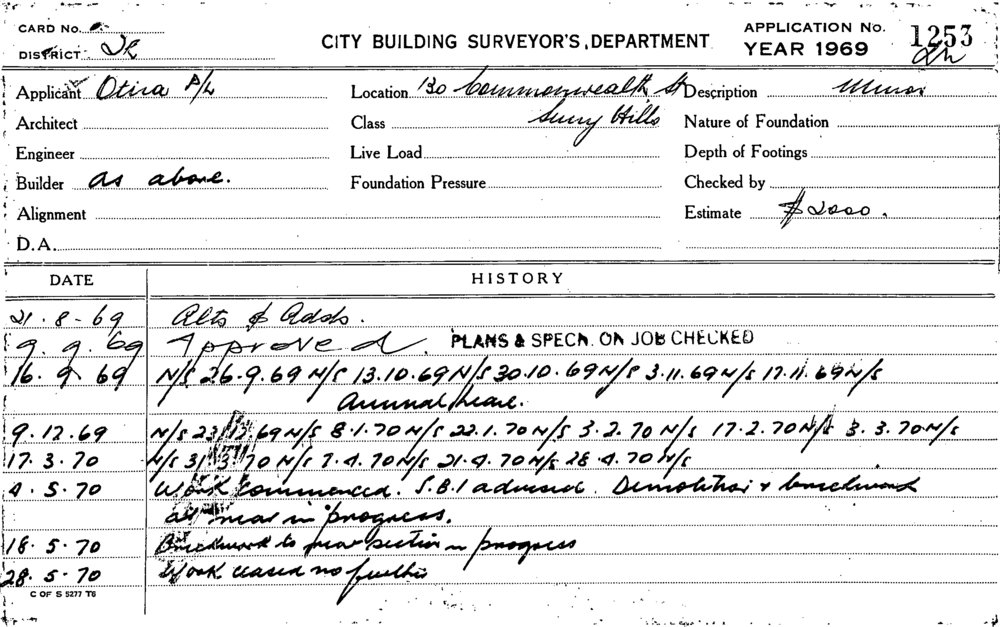 CARD No.
DISTRICT SR
CITY BUILDING SURVEYOR'S DEPARTMENT
APPLICATION No. 1253
YEAR 1969
Applicant Otira P/L
Location 130 Commonwealth St
Description Minor
Architect
Class Surry Hills
Nature of Foundation
Engineer
Live Load
Depth of Footings
Builder as above.
Foundation Pressure
Checked by
Alignment
Estimate $2000.
D.A.
DATE HISTORY
21.8-69 Alts & Adds.
9.9.69 Approved. PLANS & SPECN. ON JOB CHECKED
16.9.69 N/S 26.9.69 N/S 13.10.69 N/S 30.10.69 N/S 3.11.69 N/S 17.11.69 N/S
Annual leave.
9.12.69 N/S 23/12/69 N/S 8.1.70 N/S 22.1.70 N/S 3.2.70 N/S 17.2.70 N/S 3.3.70 N/S
17.3.70 N/S 31/3/70 N/S 7.4.70 N/S 21.4.70 N/S 28.4.70 N/S
4.5.70 Work commenced. S.B.I advised. Demolition & brickwork
at rear in progress.
18.5.70 Brickwork to rear section in progress
28.5.70 Work ceased no further
C OF S 5277 T6